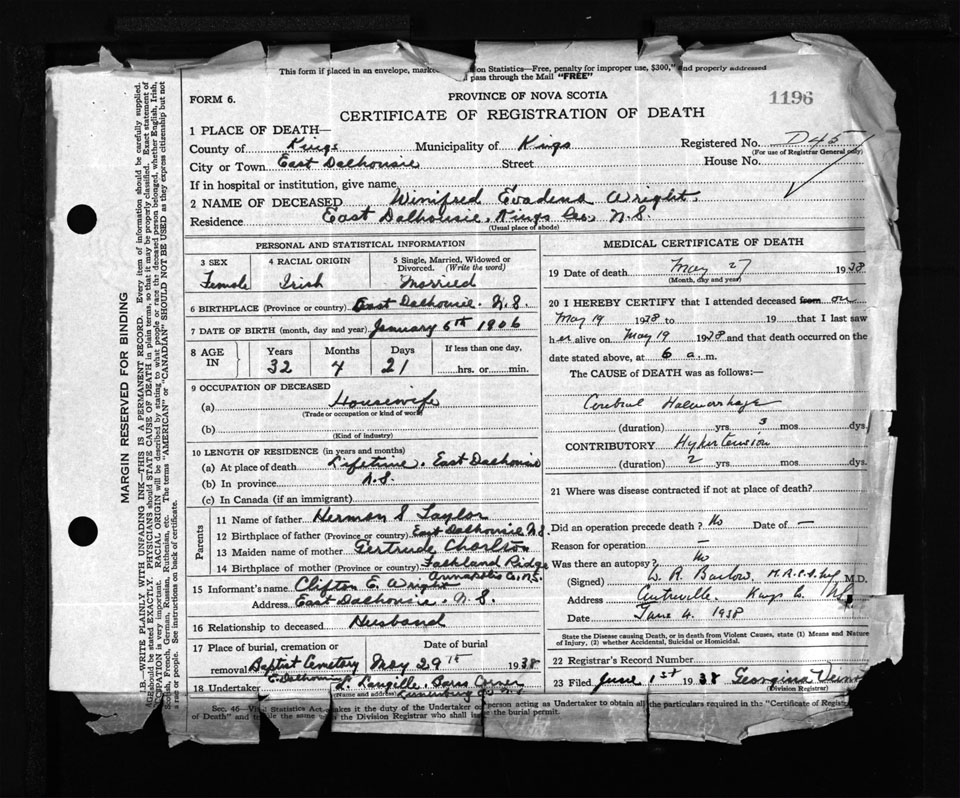 This form if placed in an envelope, marked on Statistics—Free, penalty for improper use, $300," and properly addressed
pass through the Mail "FREE"
FORM 6.
PROVINCE OF NOVA SCOTIA
1196
CERTIFICATE OF REGISTRATION OF DEATH
1 PLACE OF DEATH—
Registered No. D45
County of Kings Municipality of Kings
(For use of Registrar General only)
City or Town East Dalhousie Street House No.
If in hospital or institution, give name
2 NAME OF DECEASED Winifred Evadena Wright.
Residence East Dalhousie, Kings Co., N.S.
(Usual place of abode)
PERSONAL AND STATISTICAL INFORMATION
3 SEX 4 RACIAL ORIGIN 5 Single, Married, Widowed or Divorced. (Write the word)
Female Irish Married
6 BIRTHPLACE (Province or country) East Dalhousie. N.S.
7 DATE OF BIRTH (month, day and year) January 6th 1906
8 AGE IN Years Months Days If less than one day,
32 4 21 hrs. or min.
9 OCCUPATION OF DECEASED
(a) Housewife
(Trade or occupation or kind of work)
(b)
(Kind of industry)
10 LENGTH OF RESIDENCE (in years and months)
(a) At place of death Lifetime. East Dalhousie
(b) In province N.S.
(c) In Canada (if an immigrant)
Parents
11 Name of father Herman S Taylor
12 Birthplace of father (Province or country) East Dalhousie N.S.
13 Maiden name of mother Gertrude Charlton
14 Birthplace of mother (Province or country) Falkland Ridge
Annapolis Co. N.S.
15 Informant's name Clifton E. Wright
Address East Dalhousie. N.S.
16 Relationship to deceased Husband
17 Place of burial, cremation or removal Date of burial
Baptist Cemetery May 29th 1938
E. Dalhousie
18 Undertaker L. Langille, Barss Corner
(Name and address) Lunenburg Co N.S.
MEDICAL CERTIFICATE OF DEATH
19 Date of death May 27 1938
(Month, day and year)
20 I HEREBY CERTIFY that I attended deceased from on
May 19 1938 to 19 that I last saw
her alive on May 19 1938 and that death occurred on the
date stated above, at 6 a. m.
The CAUSE of DEATH was as follows:—
Cerebral Haemorrhage
(duration) yrs 3 mos. dys.
CONTRIBUTORY Hypertension
(duration) 2 yrs mos. dys.
21 Where was disease contracted if not at place of death?
Did an operation precede death? No Date of —
Reason for operation —
Was there an autopsy? No
(Signed) W. R. Barlow. M.R.C.S. M.D.
Address Centreville. Kings Co. N.S.
Date June 4. 1938
State the Disease causing Death, or in death from Violent Causes, state (1) Means and Nature
of Injury, (2) whether Accidental, Suicidal or Homicidal.
22 Registrar's Record Number
23 Filed June 1st 1938 Georgina
(Division Registrar)
Sec. 45—Vital Statistics Act makes it the duty of the Undertaker or person acting as Undertaker to obtain all the particulars required in the "Certificate of Registr
of Death" and the same the Division Registrar who shall issue the burial permit.
MARGIN RESERVED FOR BINDING
N.B.—WRITE PLAINLY WITH UNFADING INK—THIS IS A PERMANENT RECORD. Every item of information should be carefully supplied.
AGE should be stated EXACTLY. PHYSICIANS should STATE CAUSE OF DEATH in plain terms, so that it may be properly classified. Exact statement of
OCCUPATION is very important. RACIAL ORIGIN will be described by stating to what people or race the deceased person belonged, whether English, Irish,
Scotch, French, German, Russian, Ruthenian, etc. The terms "AMERICAN" or "CANADIAN" SHOULD NOT BE USED as they express citizenship but not
a race or people. See instructions on back of certificate.